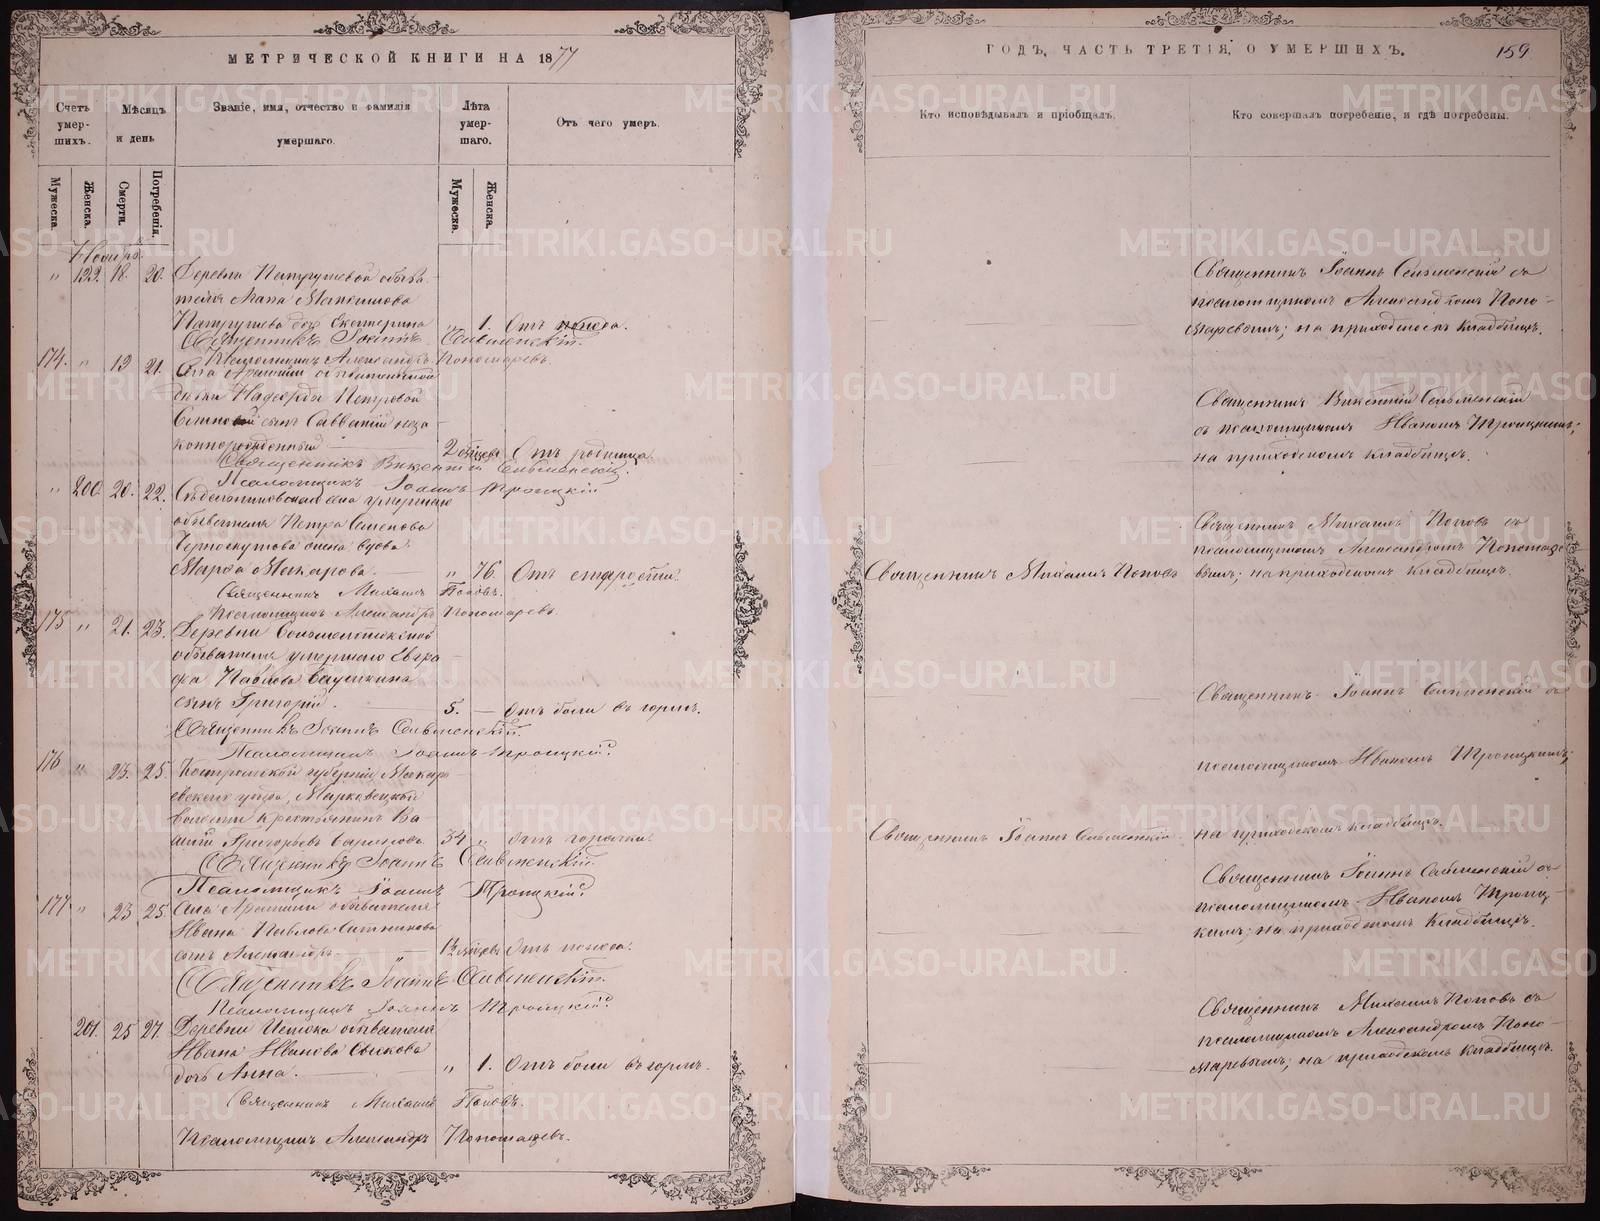 МЕТРИЧЕСКОЙ КНИГИ НА 1877
Счетъ умер-шихъ.
Мѣсяцъ и день
Званіе, имя, отчество и фамилія умершаго.
Лѣта умер-шаго.
Отъ чего умеръ.
Мужеска.
Женска.
Смерти.
Погребенія.
Мужеска.
Женска.
Ноября
" 199. 18. 20. Деревни Патрушевой обыва-
теля Максимова
Патрушева дочь Екатерина " 1. Отъ поноса.
Священникъ Іоаннъ Сельменскій.
Псаломщикъ Александръ Пономаревъ.
174. " 19 21. Села
дѣвки Надежды Петровой
сынъ Савватій неза-
коннорожденный 2 мѣсяц. Отъ родимца
Священникъ Викентій Сельменскій.
Псаломщикъ Іоаннъ Троицкій
" 200. 20. 22. села умершаго
обывателя Петра Семенова
Черноскутова жена вдова
Марѳа Макарова. " 76. Отъ старости.
Священникъ Михаилъ Поповъ.
Псаломщикъ Александръ Пономаревъ.
175 " 21. 23. Деревни
обывателя умершаго Евгра-
фа Павлова
сынъ Григорій. 5. — Отъ боли въ горлѣ.
Священникъ Іоаннъ Сельменскій.
Псаломщикъ Іоаннъ Троицкій.
176 " 23. 25. Костромской губерніи Макарь-
евскаго уѣзда,
волости крестьянинъ Ва-
силій Григорьевъ 34 " Отъ горячки.
Священникъ Іоаннъ Сельменскій.
Псаломщикъ Іоаннъ Троицкій.
177 " 23 25. Села обывателя
Ивана Павлова Ситникова
сынъ Александръ мѣсяц. Отъ поноса.
Священникъ Іоаннъ Сельменскій.
Псаломщикъ Іоаннъ Троицкій.
201. 25 27. Деревни Истока обывателя
Ивана Иванова
дочь Анна. " 1. Отъ боли въ горлѣ.
Священникъ Михаилъ Поповъ.
Псаломщикъ Александръ Пономаревъ.
ГОДЪ, ЧАСТЬ ТРЕТІЯ, О УМЕРШИХЪ.
159
Кто исповѣдывалъ и пріобщалъ.
Кто совершалъ погребеніе, и гдѣ погребены.
Священникъ Іоаннъ Сельменскій съ
псаломщикомъ Александромъ Поно-
маревымъ; на приходскомъ кладбищѣ.
Священникъ Викентій Сельменскій
съ псаломщикомъ Иваномъ Троицкимъ;
на приходскомъ кладбищѣ.
Священникъ Михаилъ Поповъ съ
псаломщикомъ Александромъ Пономаре-
Священникъ Михаилъ Поповъ
вымъ; на приходскомъ кладбищѣ.
Священникъ Іоаннъ Сельменскій съ
псаломщикомъ Иваномъ Троицкимъ;
Священникъ Іоаннъ Сельменскій
на приходскомъ кладбищѣ.
Священникъ Іоаннъ Сельменскій съ
псаломщикомъ Иваномъ Троиц-
кимъ; на приходскомъ кладбищѣ.
Священникъ Михаилъ Поповъ съ
псаломщикомъ Александромъ Поно-
маревымъ; на приходскомъ кладбищѣ.
METRIKI.GASO-URAL.RU